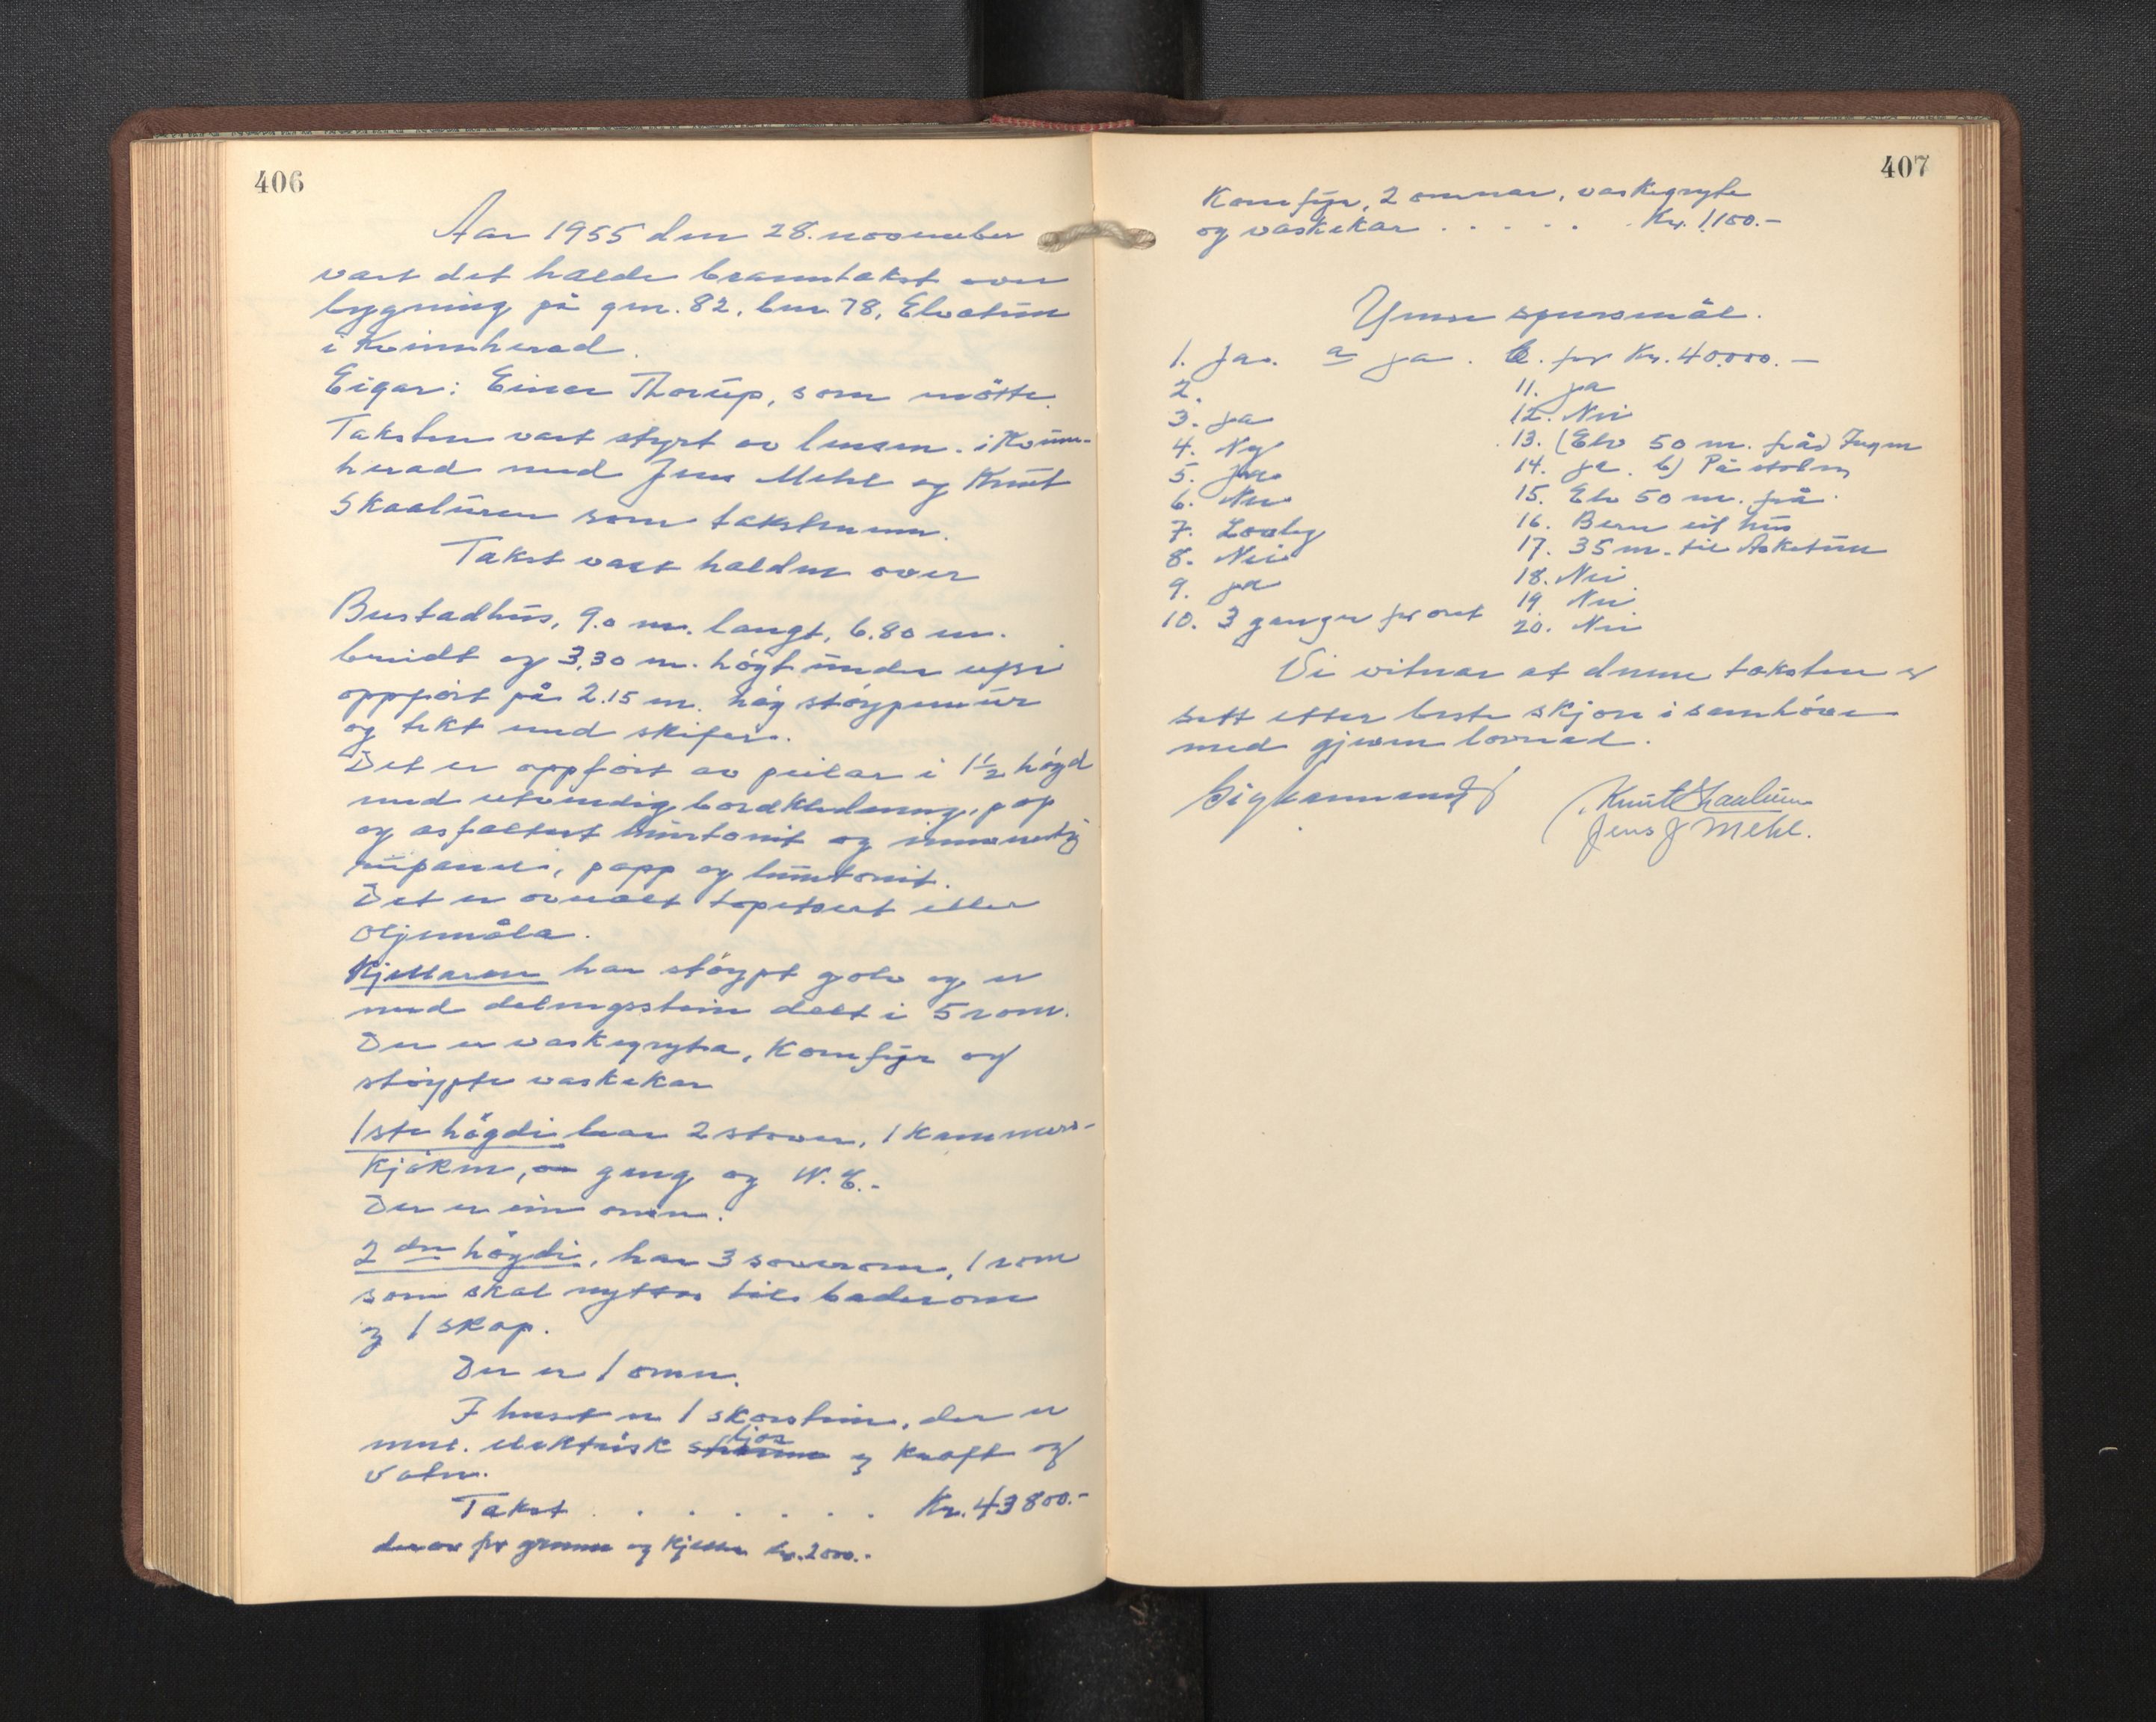 406
Aar 1955 den 28. november
vart det halde branntakst over
bygning på gnr. 82, bnr. 78, Elvatún
i Kvinnherad.
Eigar: Einar Thorúp, som mötte.
Taksten vart styrt av lensm. i Kvinn-
herad med Jens Mehl og Knút
Skaalúren som takstmenn.
Takst vart halden over
Bustadhús, 9.0 m. langt, 6.80 m.
breidt og 3.30 m. högt únder upsi
oppfört på 2.15 m. hög stöypemúr
og tekt med skifer.
Det er oppfört av peilar i 1 1/2 högd
med utvendig bordkledning, pap
og asfaltert húntonit og innvendig
rúpanel, papp og húntonit.
Det er overalt tapetsert eller
oljemåla.
Kjellaren har stöypt golv og er
med delingsstein delt i 5 rom.
Der er vaskegryta, Komfýr og
stöypte vaskekar
1ste högdi har 2 stover, 1 Kammers-
Kjökin, gang og W.C.-
Der er ein omn.
2 dre högdi, har 3 soverom, 1 rom
som skal nyttas til baderom
og 1 skap.
Der er 1 omn.
I huset er 1 skorstein, der er
innl. elektrisk ljos og kraft og
Vatn.
Takst . . . . . . . Kr. 43800.-
derav for grunn og Kjeller kr. 2000.-
407
Komfýr, 2 omnar, vaskegryte
og vaskekar . . . . . . Kr. 1.100.-
Ymse spursmål.
1. Ja. a ja. b. for Kr. 40.000.-
2.
3. ja
4. Ny
5. ja
6. Nei
7. Lovleg
8. Nei
9. ja
10. 3 ganger for året
11. ja
12. Nei
13. (Elv 50 m. frå) Ingen
14. ja. b) På stolen
15. Elv 50 m. frå.
16. Berre eit hús
17. 35 m. til Asketún
18. Nei
19. Nei
20. Nei
Vi vitnar at denne taksten er
sett etter beste skjön i samhöve
med gjeven lovnad.
Knút Skaalúren
Jens J Mehl.